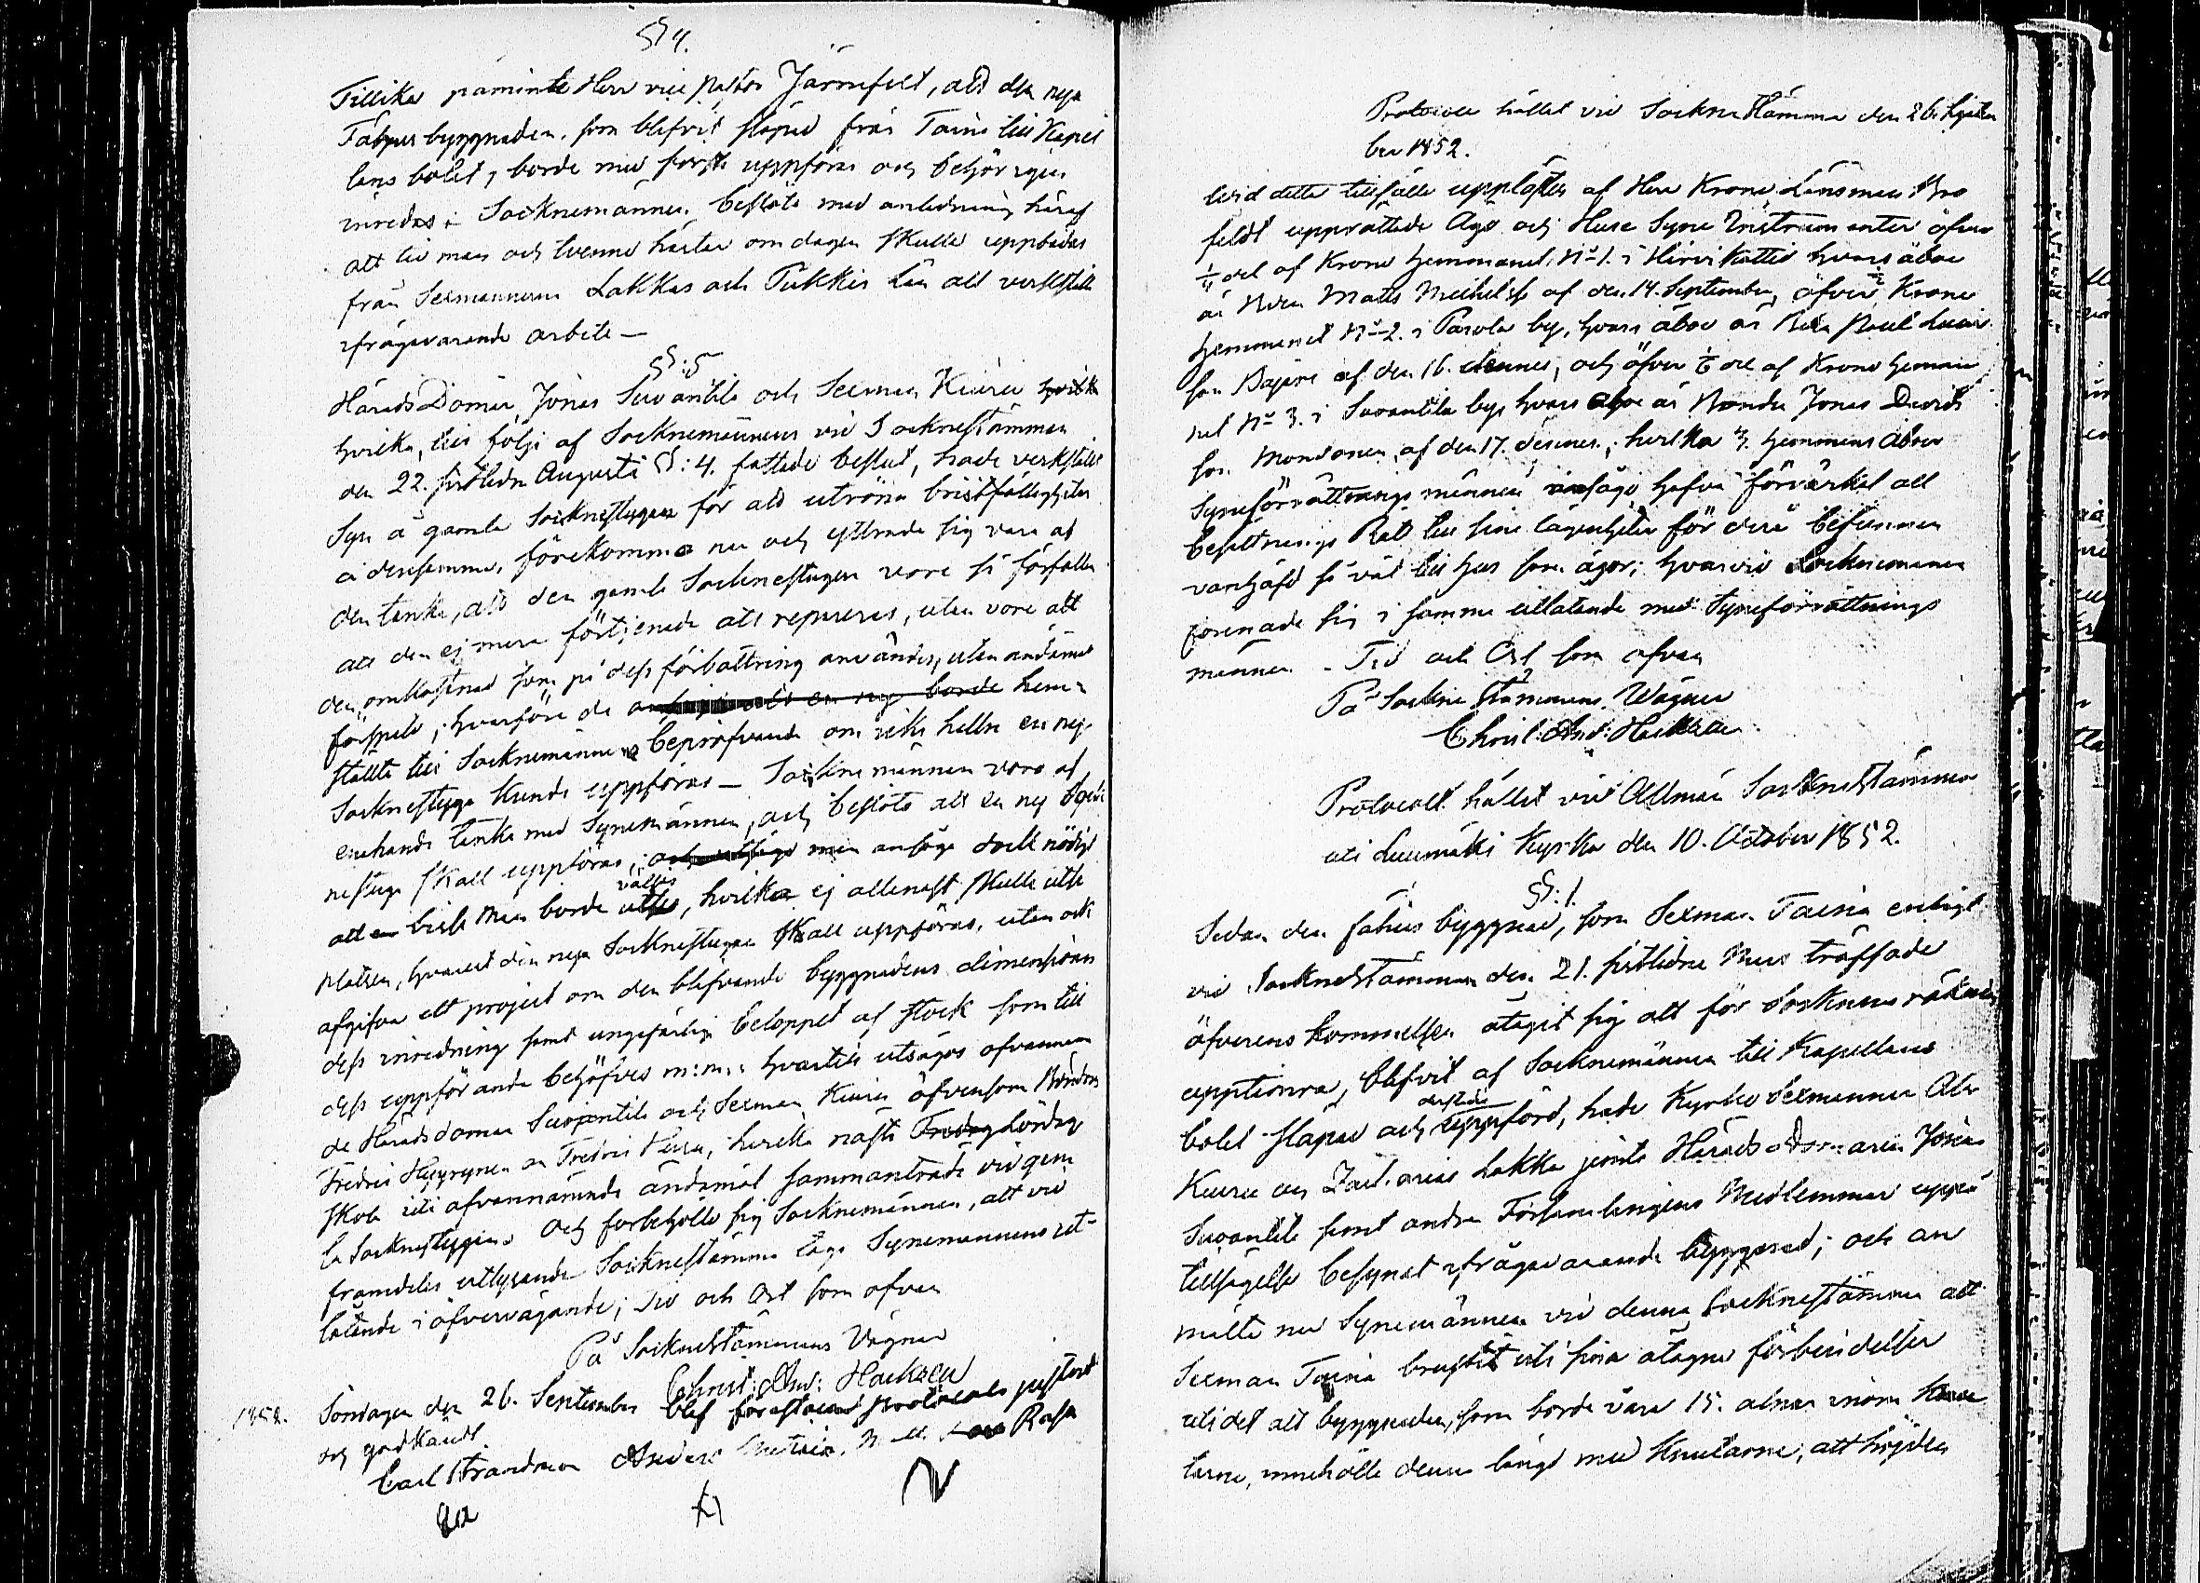 § 4.
Tillika påminte Herr vice Pastor Järnefelt, att den nya
Fähus byggnaden, som blifvit släpad från Taina till Kapel
lans bolet, borde med första uppföras och behörigen
inredas; Socknemännen beslöto med anledning häraf
att tio man och tvenne hästar om dagen skulle uppbådas
från Sexmannerne Lakkas och Pukkis län att verkställa
ifrågavarande arbete —
§: 5
HäradsDomar Jonas Suvantila och Sexman Kiuru
hvilka, till följe af Socknemännens vid Socknestämman
den 22. sistledne Augusti §: 4. fattade beslut, hade verkställt
Syn å gamla Socknestugan för att utröna bristfälligheter
å densamma, förekommo nu och yttrade sig vara af
den tanke, att den gamla Socknestugan vore så förfallen
att den ej mera förtjenade att repareras, utan vore all
den omkostnad som på dess förbättring användes, utan ändamål
förspild; hvarföre de hem-
ställte till Socknemännens bepröfvande om icke hellre en ny
Socknestuga kunde uppföras — Socknemännen voro af
enahanda tanke med Synemännen, och beslöto att en ny Sock
nestuga skall uppföras, men ansågo dock nödigt
att vissa Män borde väljas, hvilka ej allenast skulle utse
platsen, hvarest den nya Socknestugan skall uppföras, utan ock
afgifva ett project om den blifvande byggnadens dimension
dess inredning samt ungefärliga beloppet af stock som till
dess uppförande behöfves m: m: hvartill utsågos ofvannämn
de Häradsdomar Suvantila och Sexman Kiuru äfvensom Bönderne
Fredric och Fredric, hvilka nästa Lördag
skola uti ofvannämnde ändamål sammanträda vid gam
la Socknestugan. Och förbehöllo sig Socknemännen, att vid
framdeles utlysande Socknestämma taga Synemannens ut-
låtande i öfvervägande; Tid och Ort som ofvan
På Sockne Stämmans Vägnar
Christ: And: Hackzell
1852. Söndagen den 26. September blef förestående protocoll justerat
och godkändt
Carl Strandman Anders
Protocoll hållet vid Sockne Stämma den 26. Septem
ber 1852.
Vid detta tillfälle upplästes af Herr Krono Länsman Bro
feldt upprättade Ägo och Huse Syne Instrumenter öfver
del af Krono Hemmanet N:o 1. i Hirvikallio hvars åboe
är Matts Michelss: af den 14. September, öfver Krono
Hemmanet N:o 2. i Parola by, hvars åboe är Paul
son af den 16. dennes, och öfver del af Krono Hemma
net N:o 3. i Suvantila by hvars åboe är Bonden Jonas Davids
son Mononen, af den 17. dennes; hvilka 3. hemmans åboer
Syneförrättnings männen ansågo hafva förvärkat all
besittnings Rätt till sine lägenheter för derå befunnen
vanhäfd så väl till hus som ägor; hvarvid Socknemännen
förenade sig i samma utlåtande med Syneförrättnings
männen. - Tid och Ort som ofvan
På Sockne Stämmans Vägnar
Christ: And: Hackzell.
Protocoll hållet vid Allmän Socknestämma
uti Luumäki Kyrka den 10. October 1852.
§: 1.
Sedan den fähus byggnad, som Sexman Taina enligt
vid Socknestämman den 21. sistledne träffade
öfverens kommelse åtagit sig att för Socknens räkning
upptimra, blifvit af Socknemännen till Kapellans
bolet släpad och uppförd, hade Kyrko Sexmannen
Kiuru och Zacharias Lakka jemte Härads Domaren Jonas
Suvantila samt andra Församlingens Medlemmar uppå
tillsägelse besynat ifrågavarande byggnad; och an
mälte nu Synemännen vid denna Socknestämma att
Sexman Taina brustit uti sina åtagne förbindelser
uti det att byggnaden, som borde vara 15. alnar inom Knu
tarne, innehölle denna längd med Knutarne, att höjden